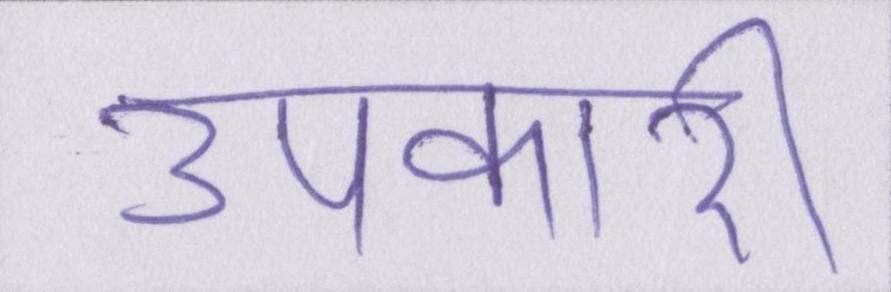 उपकारी